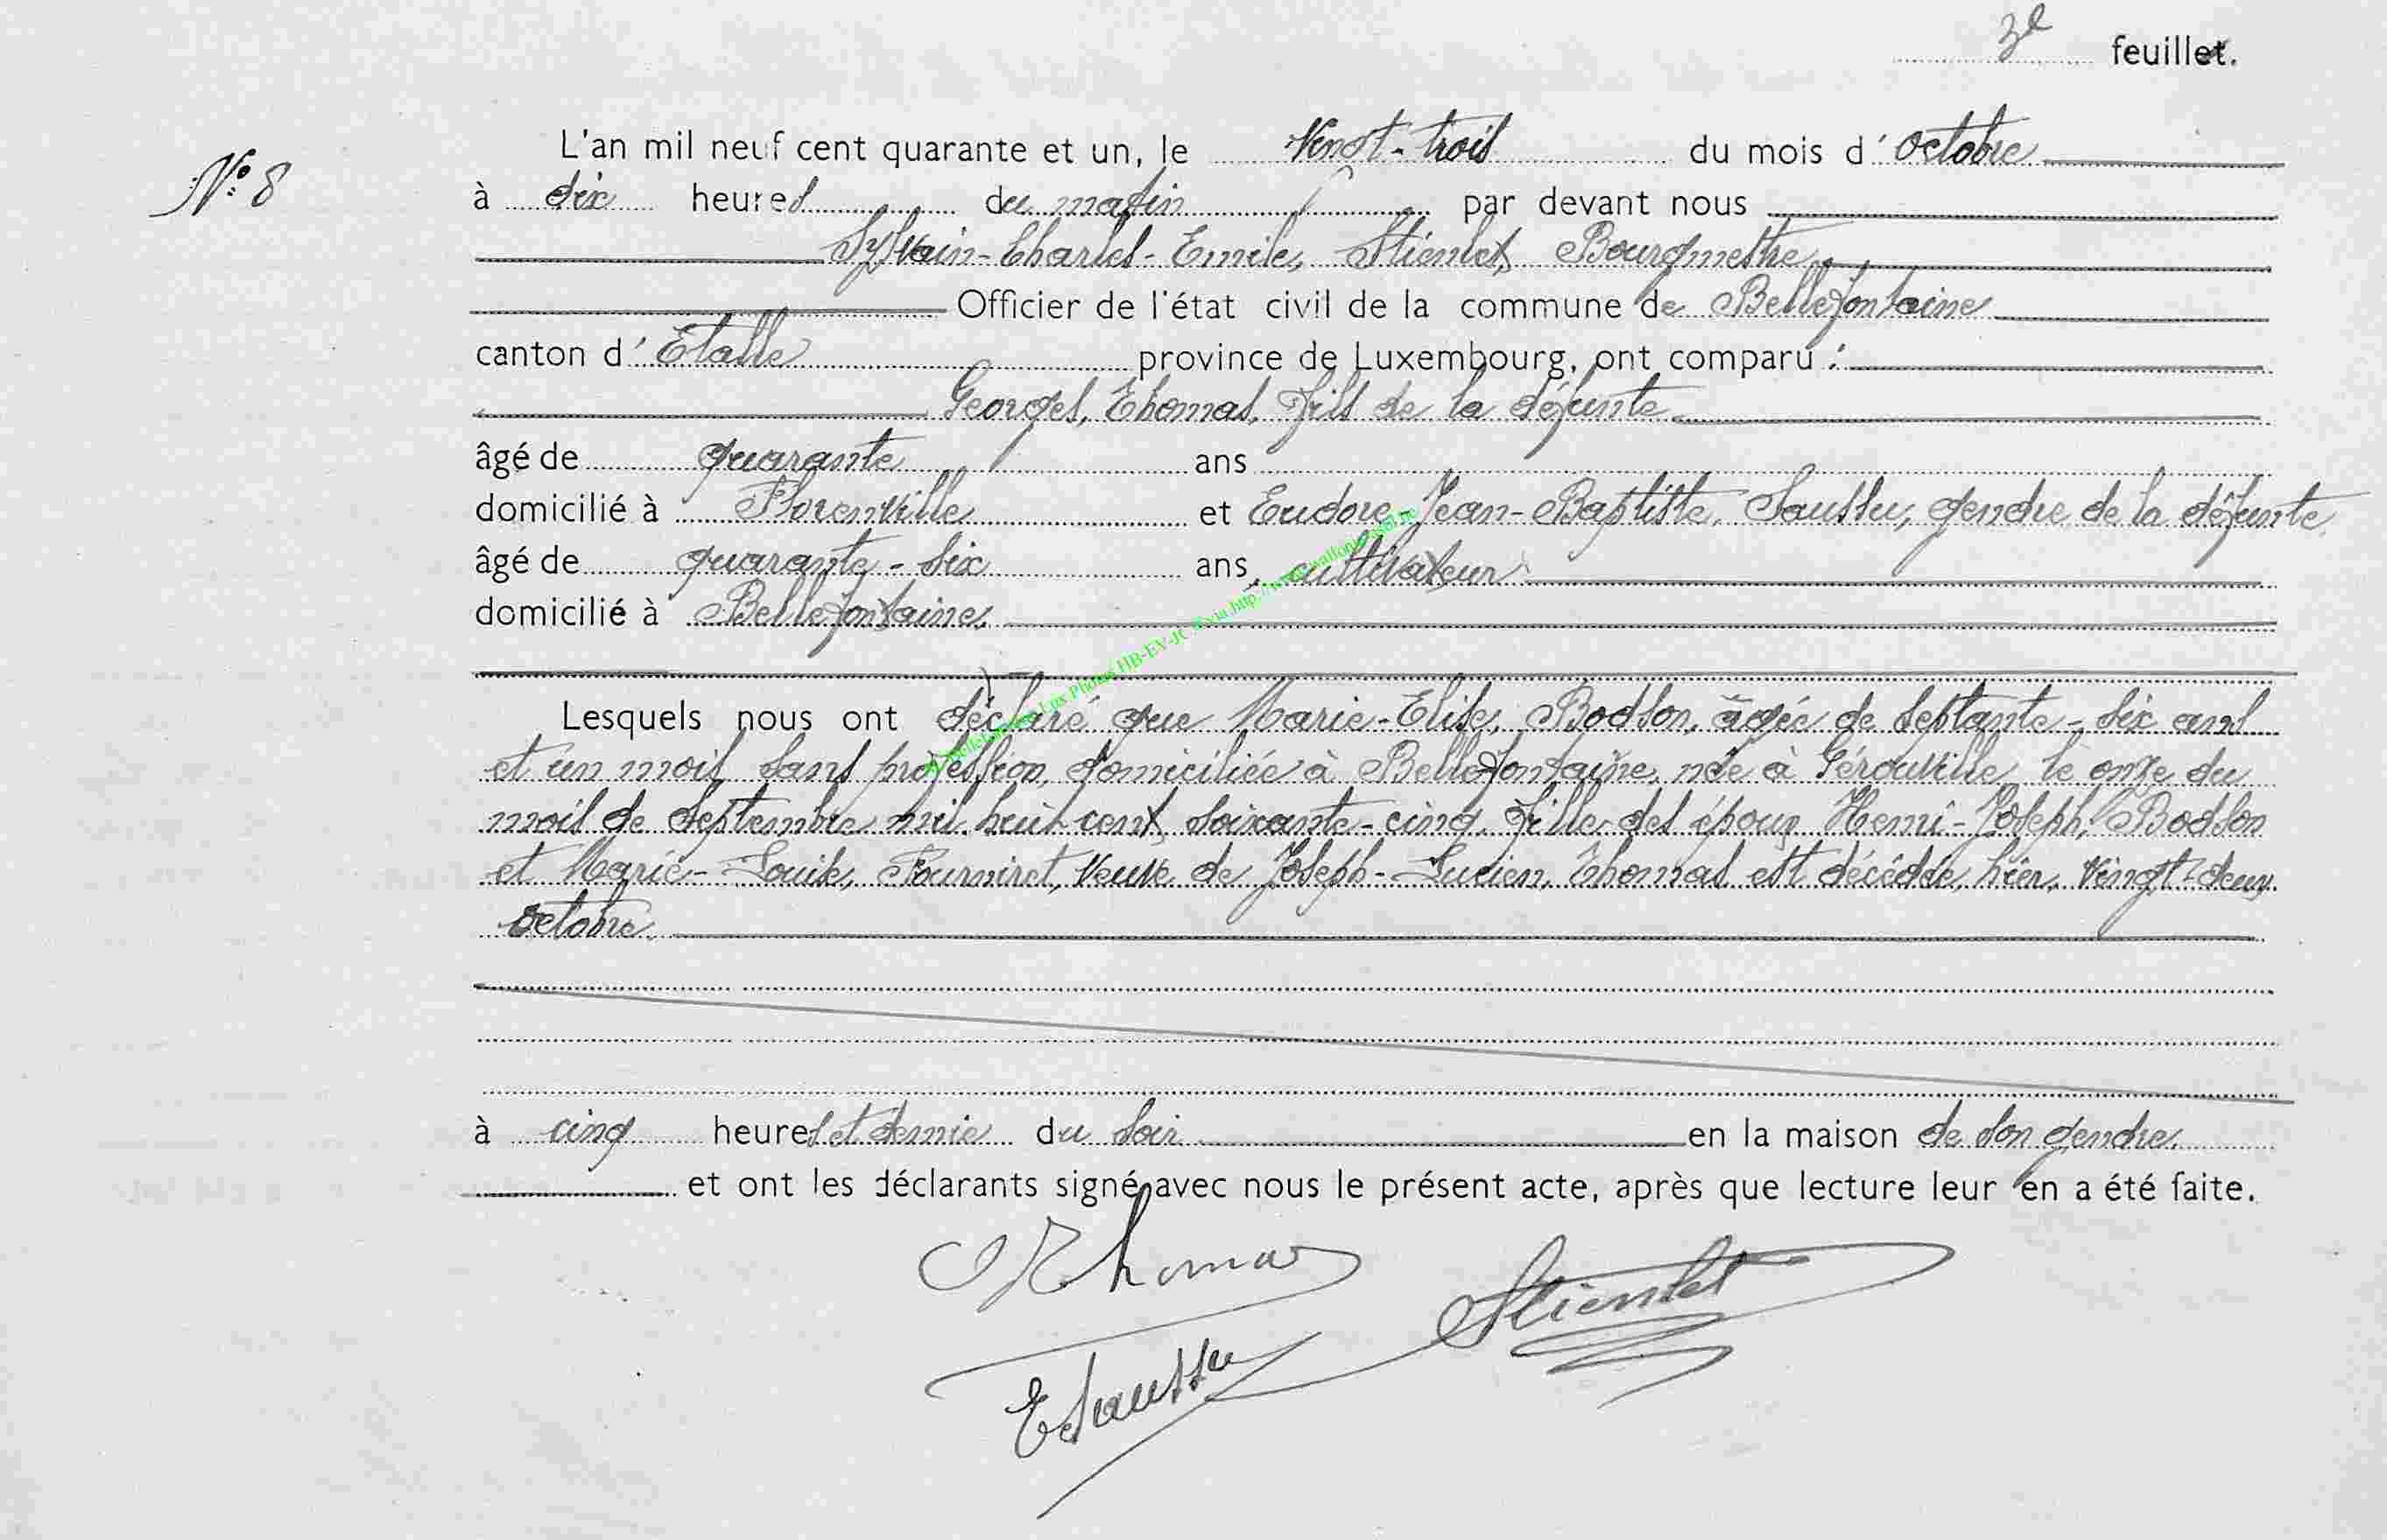 3e feuillet.
N° 8
L'an mil neuf cent quarante et un, le Vingt-trois du mois d'octobre
à dix heures du matin par devant nous
Sylvain-Charles-Emile, Stienlet, Bourgmestre,
Officier de l'état civil de la commune de Bellefontaine
canton d'Etalle province de Luxembourg, ont comparu :
Georges, Thomas, fils de la défunte
âgé de quarante ans
domicilié à Florenville et Eudore-Jean-Baptiste, Saussu, gendre de la défunte,
âgé de quarante-six ans, cultivateur
domicilié à Bellefontaine,
Lesquels nous ont déclaré que Marie-Elise, Bodson, âgée de septante-six ans
et un mois, sans profession, domiciliée à Bellefontaine, née à Gérouville, le onze du
mois de septembre mil huit cent soixante-cinq, fille des époux Henri-Joseph, Bodson
et Marie-Louise, Fourniret, veuve de Joseph-Lucien, Thomas est décédée, hier, vingt-deux
octobre
à cinq heures et demie du soir en la maison de son gendre.
et ont les déclarants signé avec nous le présent acte, après que lecture leur en a été faite.
Thomas
Stienlet
E Saussu